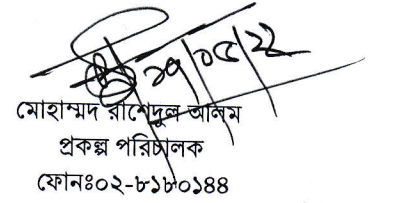 ১৭/০৫/২২
মোহাম্মদ রাশেদুল আলম
প্রকল্প পরিচালক
ফোনঃ০২-৮১৮০১৪৪